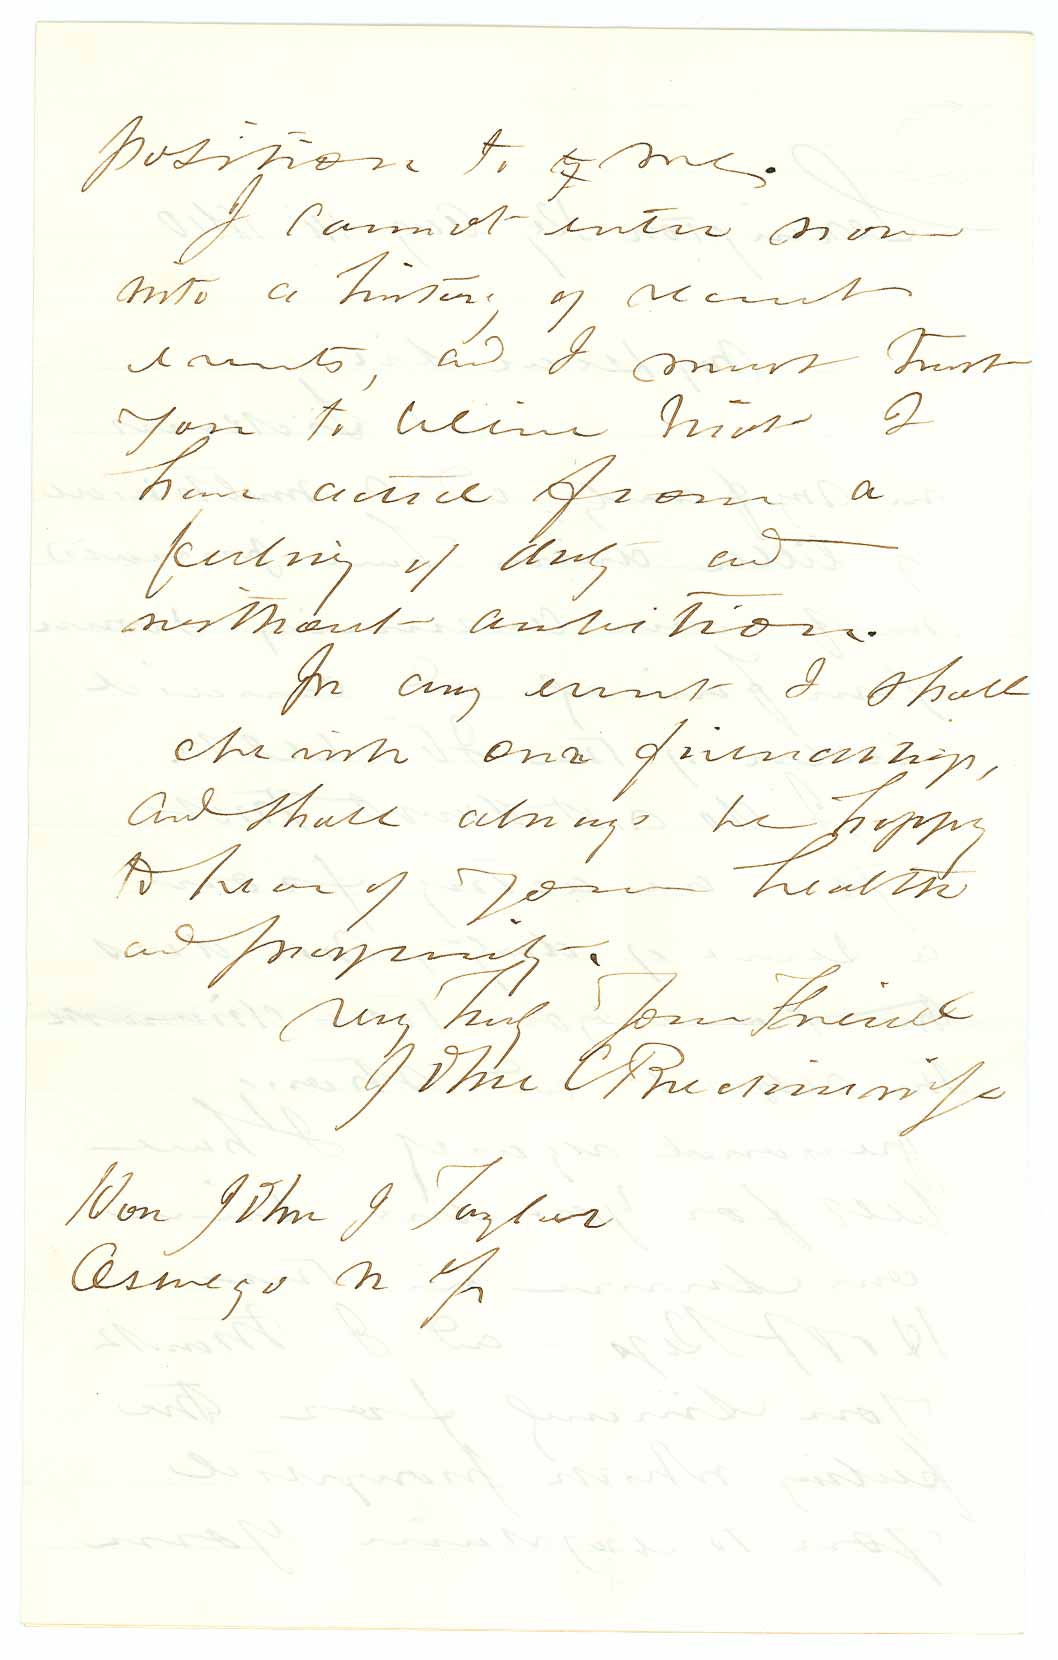 position to me.
I cannot enter now
into a history of recent
events, and I must trust
you to believe that I
have acted from a
feeling of duty and
without ambition.
In any event I shall
cherish our friendship,
and shall always be happy
to hear of your health
and prosperity.
Very truly Your Friend
John C Breckinridge
Hon John J Taylor
Oswego N Y